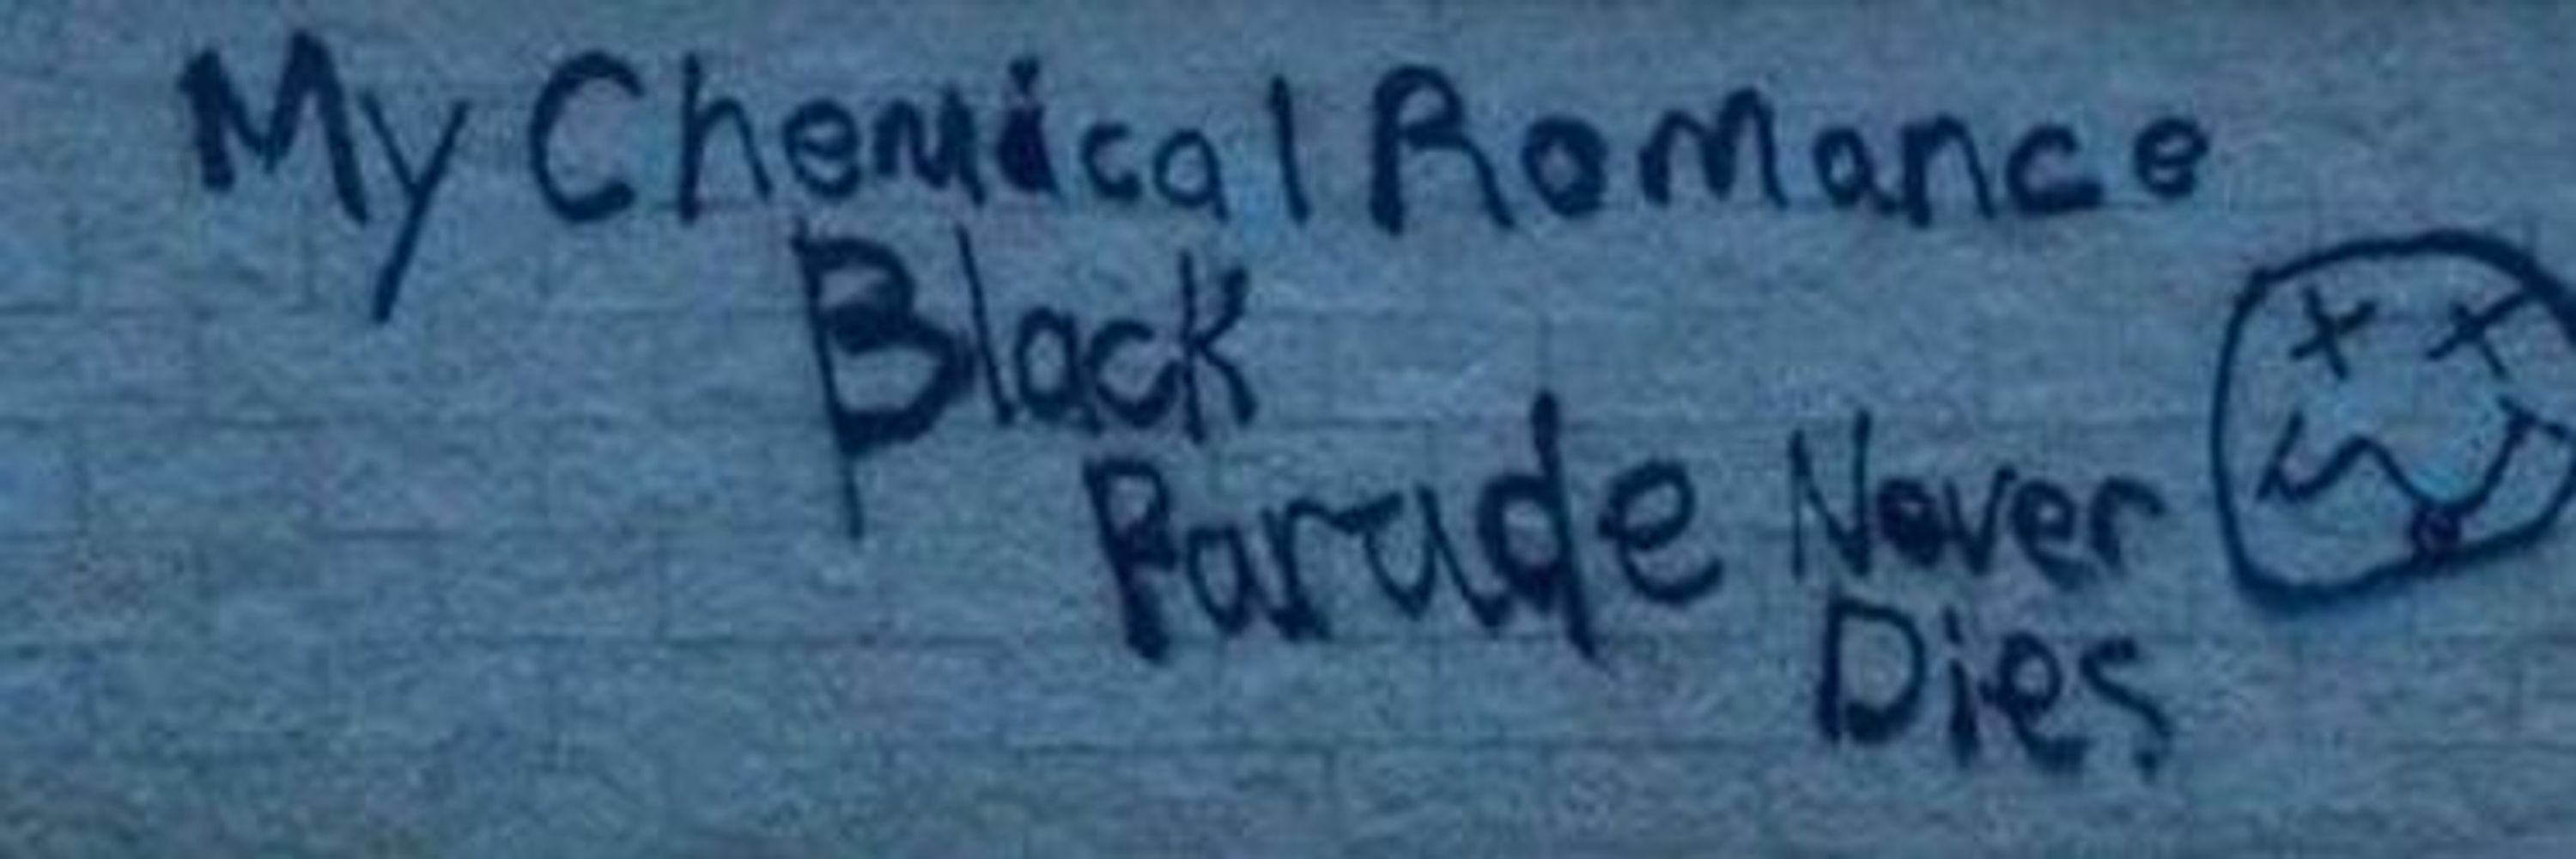 My Chemical Romance
Black
Parade Never
Dies